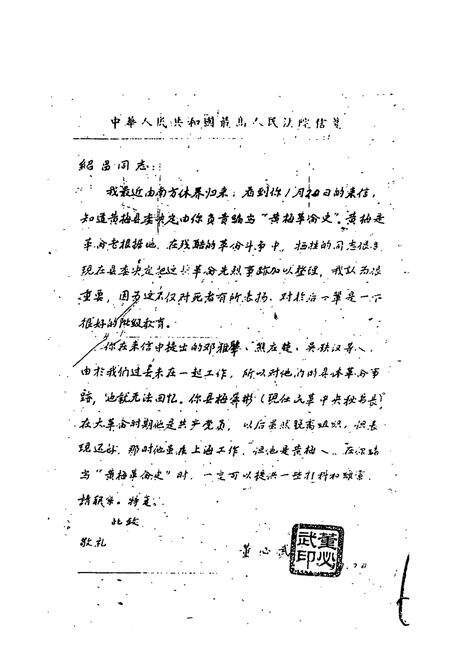 中華人民共和國最高人民法院信箋
紹昌同志：
我最近由南方休养归来，看到你1月20日的来信，
知道黄梅县委决定由你负责编写“黄梅革命史”。黄梅是
革命老根据地，在残酷的革命斗争中，牺牲的同志很多
现在县委决定把这些革命先烈事迹加以整理，我认为很
重要，因为这不仅对死者有所表扬，对于后一辈是一个
很好的阶级教育。
你在来信中提出的邓雅聲、熊应楚、吴铁汉等人，
由于我们过去未在一起工作，所以对他们的具体革命事
蹟，也就无法回忆。你县梅龚彬（现任民革中央秘书长）
在大革命时期他是共产党员，以后虽然脱离组织，但表
现还好，那时他虽在上海工作，但也是黄梅人，在你编
写“黄梅革命史”时，一定可以提供一些材料和
請联系。特复。
此致
敬礼
董必武
董必武印